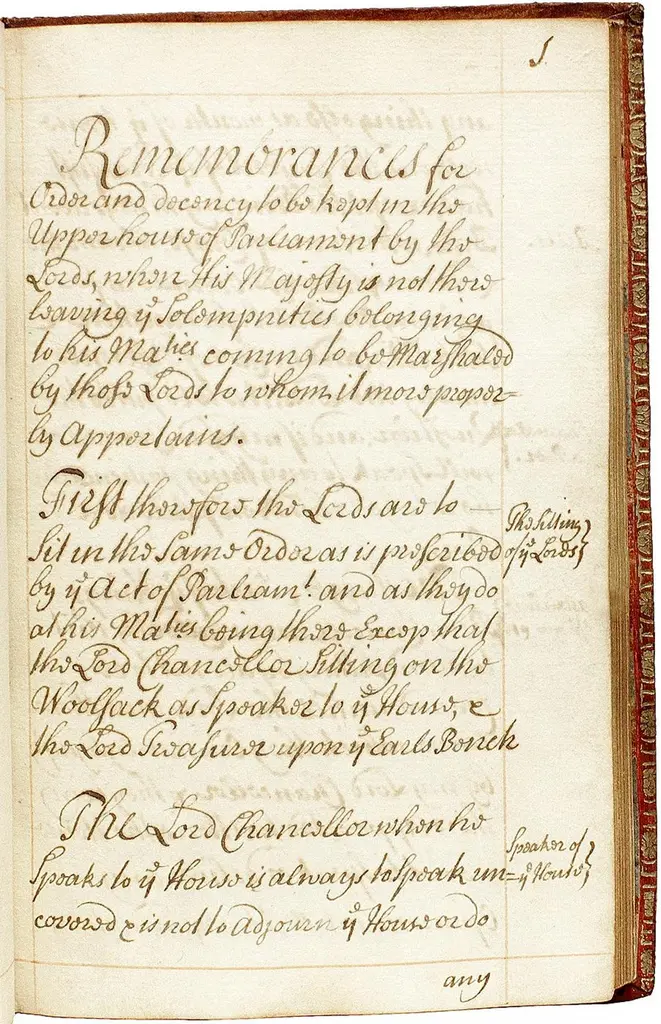 1
Remembrances for
Order and decency to be kept in the
Upper house of Parliament by the
Lords, when His Majesty is not there
leaving yͤ Solempnities belonging
to his Maᵗⁱᵉˢ coming to be Marshaled
by those Lords to whom it more proper=
ly Appertains.
First therefore the Lords are to
Sit in the Same Order as is prescribed
by yͤ Act of Parliamᵗ. and as they do
at his Maᵗⁱᵉˢ being there Excep that
the Lord Chancellor Sitting on the
Woolsack as Speaker to yͤ House, &
the Lord Treasurer upon yͤ Earls Bench
The Sitting
of yͤ Lords
The Lord Chancellor when he
Speaks to yͤ House is always to Speak un=
covered & is not to Adjourn yͤ House or do
Speaker of
yͤ House
any